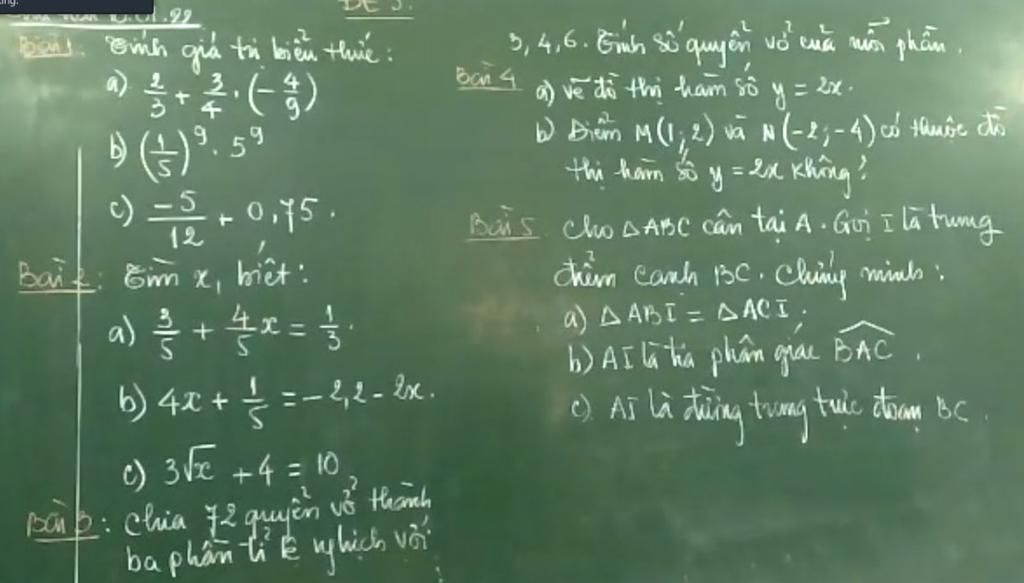 ĐỀ 3.
Bài 1: Tính giá trị biểu thức:
a) 2/3 + 3/4 . (-4/9)
b) (1/5)^9 . 5^9
c) -5/12 + 0,75.
Bài 2: Tìm x, biết:
a) 3/5 + 4/5 x = 1/3.
b) 4x + 1/5 = -2,2 - 2x.
c) 3√x + 4 = 10
Bài 3: Chia 72 quyển vở thành
ba phần tỉ lệ nghịch với
3, 4, 6. Tính số quyển vở của mỗi phần.
Bài 4 a) Vẽ đồ thị hàm số y = 2x.
b) Điểm M(1; 2) và N(-2; -4) có thuộc đồ
thị hàm số y = 2x không?
Bài 5 Cho △ABC cân tại A. Gọi I là trung
điểm cạnh BC. Chứng minh:
a) △ABI = △ACI.
b) AI là tia phân giác \widehat{BAC}.
c) AI là đường trung trực đoạn BC.